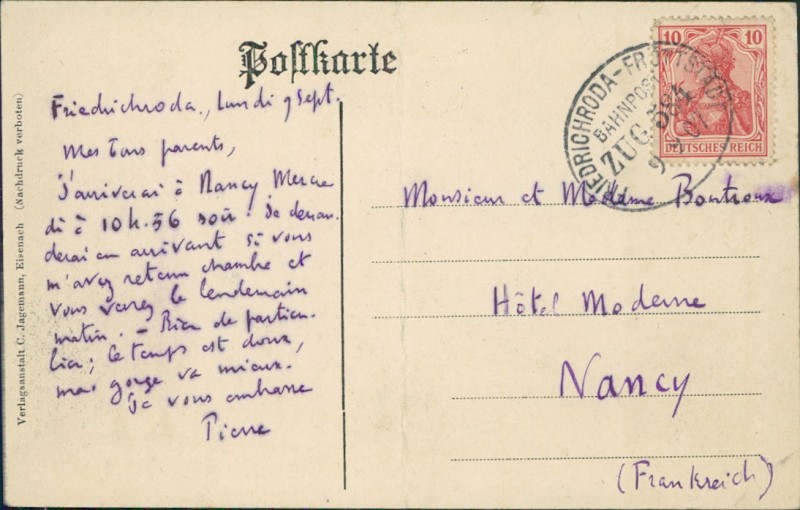 Postkarte
Friedrichroda, lundi 9 Sept.
Mes chers parents,
J'arriverai à Nancy Mercre
di à 10h.56 soir. Je deman
derai en arrivant si vous
m'avez retenu chambre et
vous verrez le lendemain
matin. – Rien de particu-
lier; le temps est doux,
ma gorge va mieux.
Je vous embrasse
Pierre
Verlagsanstalt C. Jagemann, Eisenach (Nachdruck verboten)
10 10
DEUTSCHES REICH
FRIEDRICHRODA-FRÖTTSTÄDT
BAHNPOST
ZUG 584
Monsieur et Madame Boutroux
Hôtel Moderne
Nancy
(Frankreich)